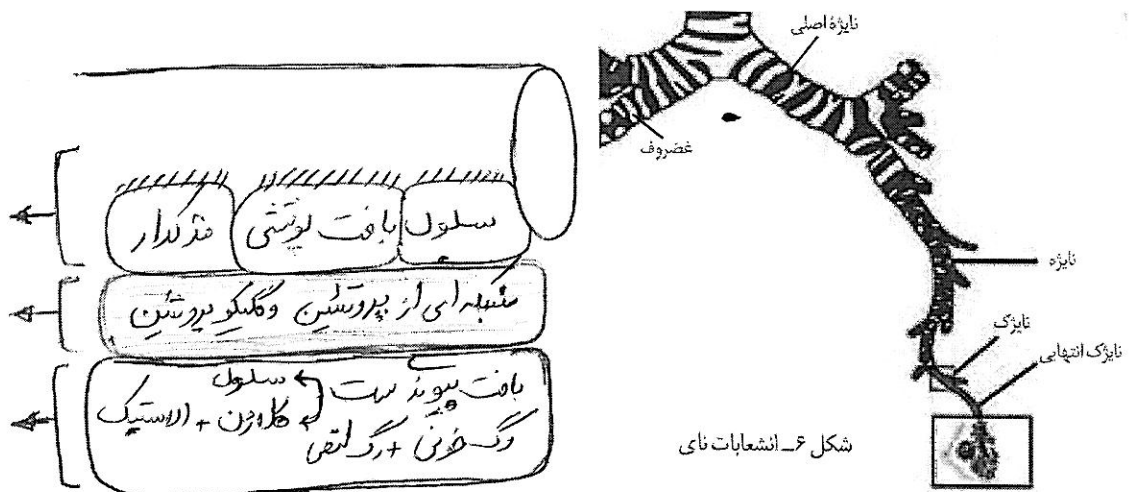 نایژهٔ اصلی
غضروف
نایژه
نایژک
نایژک انتهایی
شکل ۶ــ انشعابات نای
سلول بافت پوششی مژکدار
شبکه‌ای از پروتئین و گلیکوپروتئین
بافت پیوند سست
سلول
کلاژن + الاستیک
رگ خونی + رگ لنفی